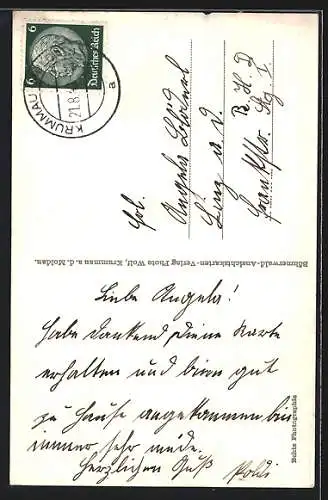 6 Deutsches Reich 6
KRUMMAU
21.8.
a
Frl.
Angela
Linz a. D.
B. H. D
Böhmerwald-Ansichtskarten-Verlag Photo Wolf, Krummau a. d. Moldau.
Liebe Angela!
Habe dankend Deine Karte
erhalten und bin gut
zu Hause angekommen bin
immer sehr müde.
Herzlichen Gruß
Poldi
Echte Photographie